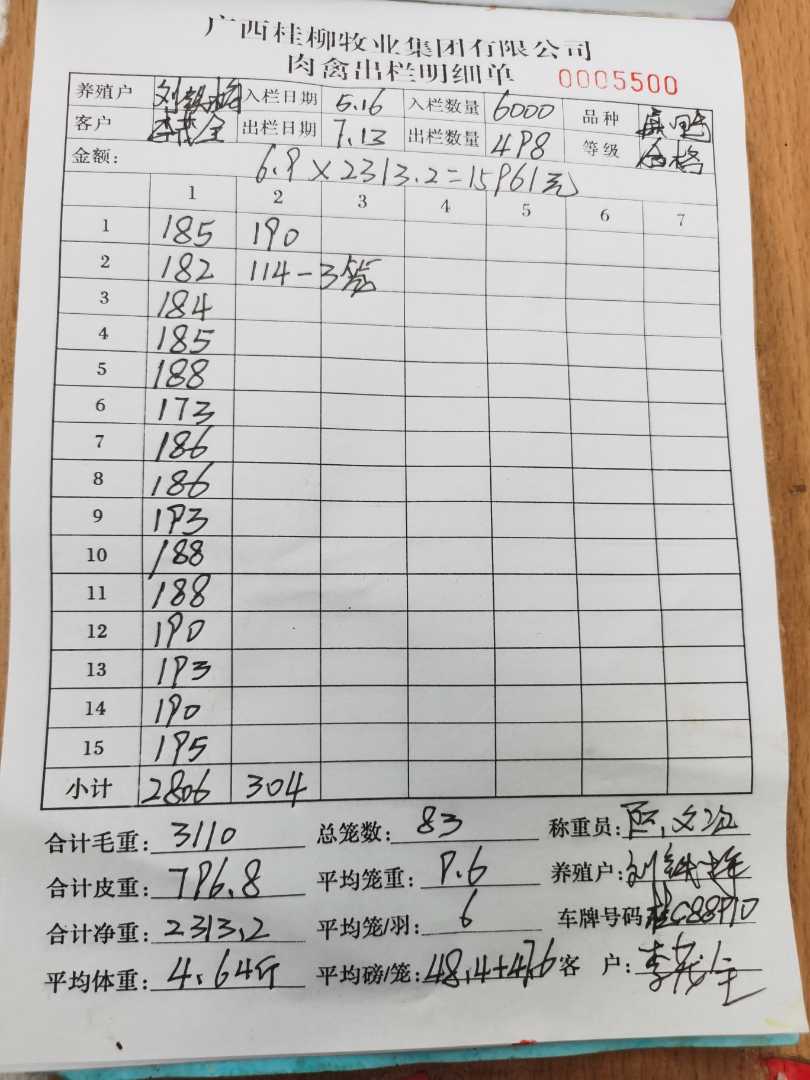 广西桂柳牧业集团有限公司
肉禽出栏明细单 0005500
养殖户 刘铁梅 入栏日期 5.16 入栏数量 6000 品种
客户 李茂全 出栏日期 7.13 出栏数量 498 等级 合格
金额: 6.9×2313.2=15961元
1 2 3 4 5 6 7
1 185 190
2 182 114-3笼
3 184
4 185
5 188
6 173
7 186
8 186
9 193
10 188
11 188
12 190
13 193
14 190
15 195
小计 2806 304
合计毛重: 3110 总笼数: 83 称重员:
合计皮重: 796.8 平均笼重: 9.6 养殖户: 刘铁梅
合计净重: 2313.2 平均笼/羽: 6 车牌号码 桂C88910
平均体重: 4.64斤 平均磅/笼: 48.4+47.6 客户: 李茂全